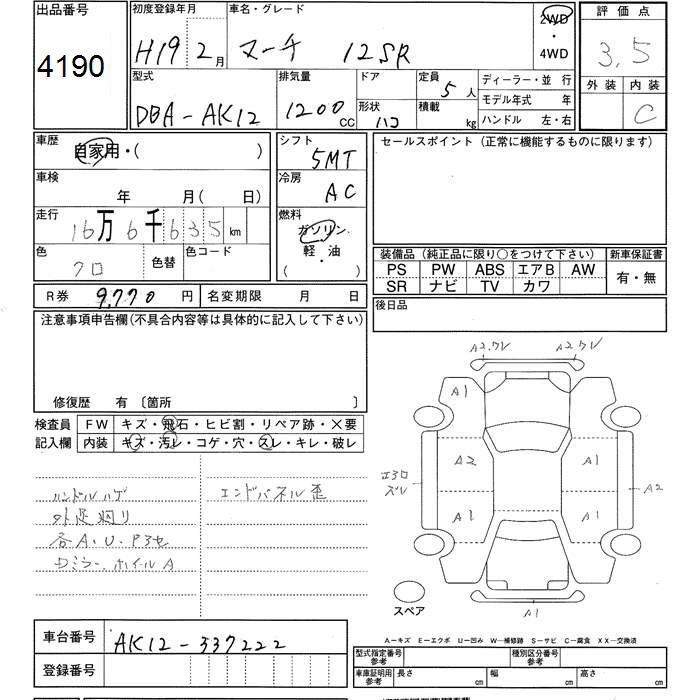 出品番号
4190
初度登録年月
H19 2月
車名・グレード
マーチ 12SR
2WD
・
4WD
評価点
3.5
外装 内装
C
型式
DBA-AK12
排気量
1200 CC
ドア
形状
ハコ
定員
5人
積載
kg
ディーラー・並行
モデル年式 年
ハンドル 左・右
車歴
自家用・( )
車検
年 月( 日)
走行
16万6千635km
色
クロ
色替
色コード
シフト
5MT
冷房
AC
燃料
ガソリン
軽・油
( )
セールスポイント(正常に機能するものに限ります)
装備品(純正品に限り○をつけて下さい)
PS PW ABS エアB AW
SR ナビ TV カワ
新車保証書
有・無
R券 9,770円
名変期限 月 日
後日品
注意事項申告欄(不具合内容等は具体的に記入して下さい)
修復歴 有〔箇所 〕
検査員
記入欄
FW キズ・飛石・ヒビ割・リペア跡・×要
内装 キズ・汚レ・コゲ・穴・スレ・キレ・破レ
ハンドルハゲ
外足廻り
各A.U.Pヨセ
ホイルA
エンドパネル歪
A1
A2
A1
A1
A1
A2
A1
スペア
A−キズ E−エクボ U−凹み W−補修跡 S−サビ C−腐食 XX−交換済
車台番号
AK12-337222
登録番号
型式指定番号
参考
種別区分番号
参考
車庫証明用
参考
長さ cm
幅 cm
高さ cm